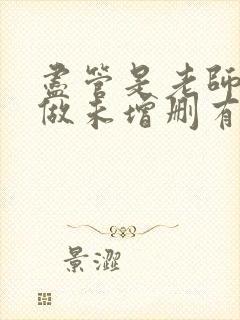 盡管是老師
做未增刪有
景澀